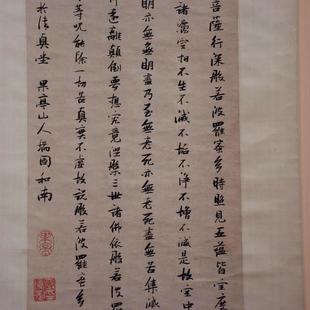 菩薩行深般若波羅蜜多時照見五蘊皆空度
諸法空相不生不滅不垢不淨不增不減是故空中
明亦無無明盡乃至無老死亦無老死盡無苦集滅
遠離顛倒夢想究竟涅槃三世諸佛依般若波羅
等咒能除一切苦真實不虛故說般若波羅蜜多
於法堂 果亭山人國和南